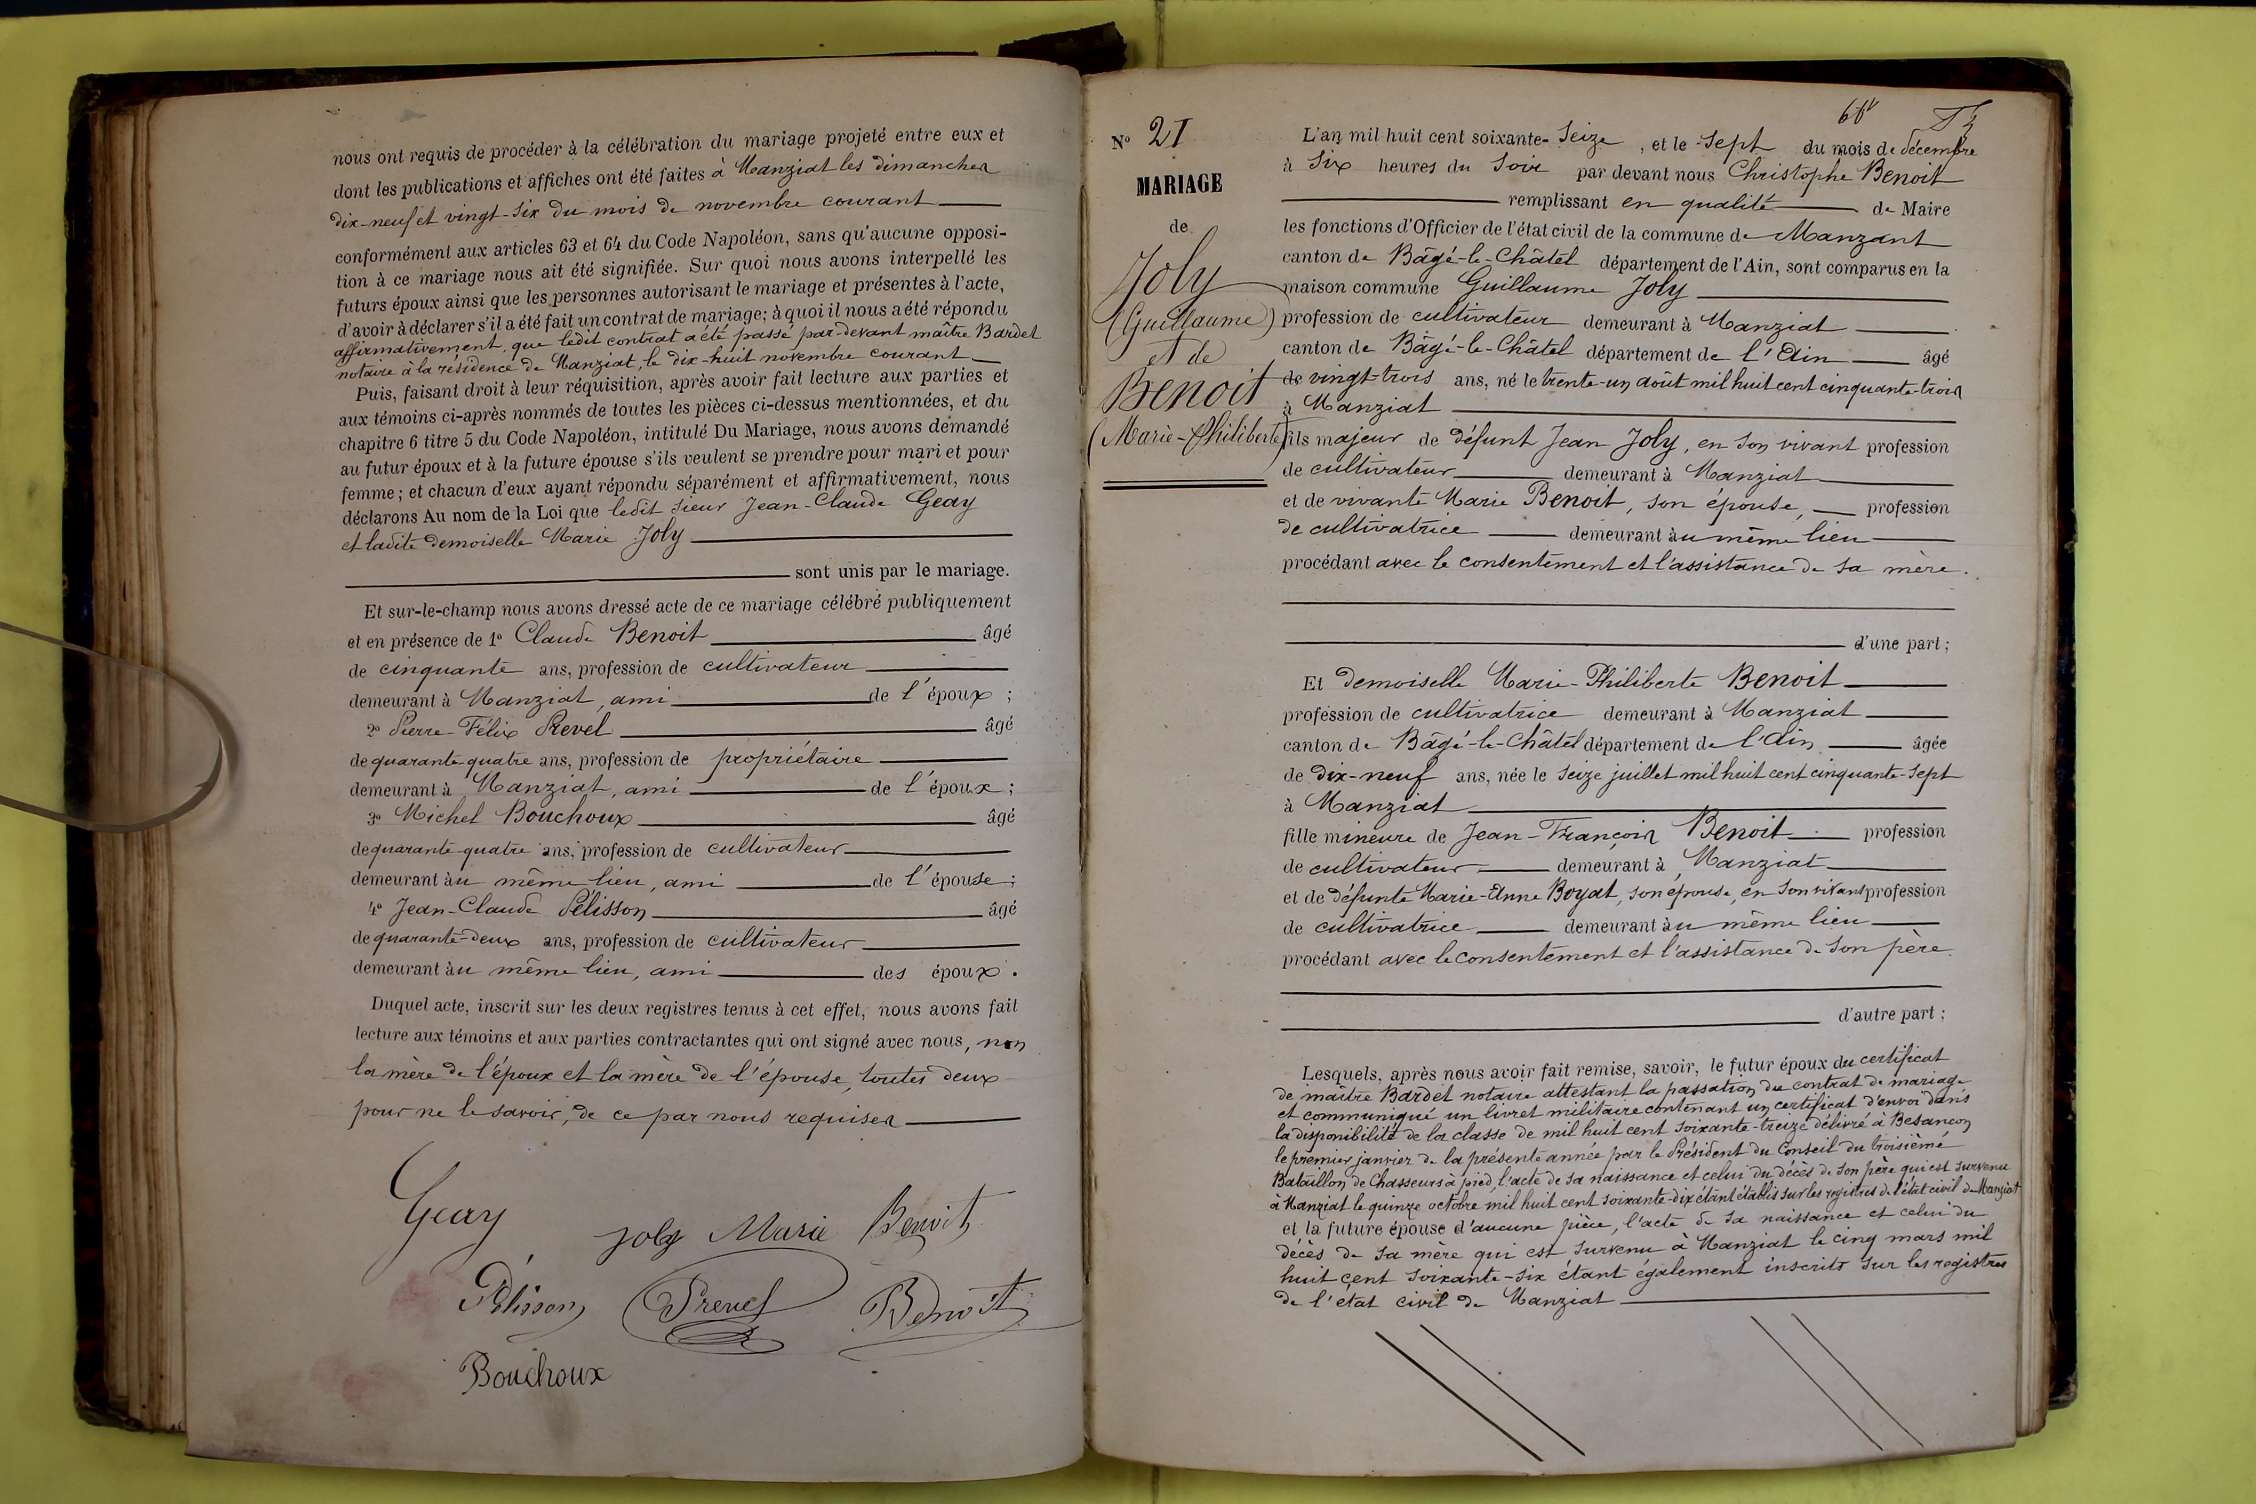 nous ont requis de procéder à la célébration du mariage projeté entre eux et
dont les publications et affiches ont été faites à Manziat les dimanches
dix-neuf et vingt-six du mois de novembre courant
conformément aux articles 63 et 64 du Code Napoléon, sans qu'aucune opposi-
tion à ce mariage nous ait été signifiée. Sur quoi nous avons interpellé les
futurs époux ainsi que les personnes autorisant le mariage et présentes à l'acte,
d'avoir à déclarer s'il a été fait un contrat de mariage; à quoi il nous a été répondu
affirmativement que ledit contrat a été passé par-devant maître Bardet
notaire à la résidence de Manziat, le dix-huit novembre courant
Puis, faisant droit à leur réquisition, après avoir fait lecture aux parties et
aux témoins ci-après nommés de toutes les pièces ci-dessus mentionnées, et du
chapitre 6 titre 5 du Code Napoléon, intitulé Du Mariage, nous avons demandé
au futur époux et à la future épouse s'ils veulent se prendre pour mari et pour
femme; et chacun d'eux ayant répondu séparément et affirmativement, nous
déclarons Au nom de la Loi que ledit sieur Jean-Claude Geay
et ladite demoiselle Marie Joly
sont unis par le mariage.
Et sur-le-champ nous avons dressé acte de ce mariage célébré publiquement
et en présence de 1° Claude Benoit âgé
de cinquante ans, profession de cultivateur
demeurant à Manziat, ami de l'époux;
2° Pierre-Félix Prevel âgé
de quarante-quatre ans, profession de propriétaire
demeurant à Manziat, ami de l'époux;
3° Michel Bouchoux âgé
de quarante-quatre ans, profession de cultivateur
demeurant au même lieu, ami de l'épouse;
4° Jean-Claude Pélisson âgé
de quarante-deux ans, profession de cultivateur
demeurant au même lieu, ami des époux.
Duquel acte, inscrit sur les deux registres tenus à cet effet, nous avons fait
lecture aux témoins et aux parties contractantes qui ont signé avec nous, non
la mère de l'époux et la mère de l'épouse, toutes deux
pour ne le savoir, de ce par nous requises
Geay Joly Marie Benoit
Pélisson Prevel Benoit
Bouchoux
N° 21
MARIAGE
de
Joly
(Guillaume)
et de
Benoit
(Marie-Philiberte)
L'an mil huit cent soixante-seize, et le sept du mois de décembre
à six heures du soir par devant nous Christophe Benoit
remplissant en qualité de Maire
les fonctions d'Officier de l'état civil de la commune de Manzant
canton de Bâgé-le-Châtel département de l'Ain, sont comparus en la
maison commune Guillaume Joly
profession de cultivateur demeurant à Manziat
canton de Bâgé-le-Châtel département de l'Ain âgé
de vingt-trois ans, né le trente-un août mil huit cent cinquante-trois
à Manziat
fils majeur de défunt Jean Joly, en son vivant profession
de cultivateur demeurant à Manziat
et de vivante Marie Benoit, son épouse, profession
de cultivatrice demeurant au même lieu
procédant avec le consentement et l'assistance de sa mère.
d'une part;
Et demoiselle Marie-Philiberte Benoit
profession de cultivatrice demeurant à Manziat
canton de Bâgé-le-Châtel département de l'Ain âgée
de dix-neuf ans, née le seize juillet mil huit cent cinquante-sept
à Manziat
fille mineure de Jean-François Benoit profession
de cultivateur demeurant à Manziat
et de défunte Marie-Anne Boyat, son épouse, en son vivant profession
de cultivatrice demeurant au même lieu
procédant avec le consentement et l'assistance de son père.
d'autre part;
Lesquels, après nous avoir fait remise, savoir, le futur époux du certificat
de maître Bardet notaire attestant la passation du contrat de mariage
et communiqué un livret militaire contenant un certificat d'envoi dans
la disponibilité de la classe de mil huit cent soixante-treize délivré à Besançon
le premier janvier de la présente année par le Président du Conseil du troisième
Bataillon de Chasseurs à pied, l'acte de sa naissance et celui du décès de son père qui est survenu
à Manziat le quinze octobre mil huit cent soixante-dix étant établis sur les registres de l'état civil de Manziat
et la future épouse d'aucune pièce, l'acte de sa naissance et celui du
décès de sa mère qui est survenu à Manziat le cinq mars mil
huit cent soixante-six étant également inscrits sur les registres
de l'état civil de Manziat